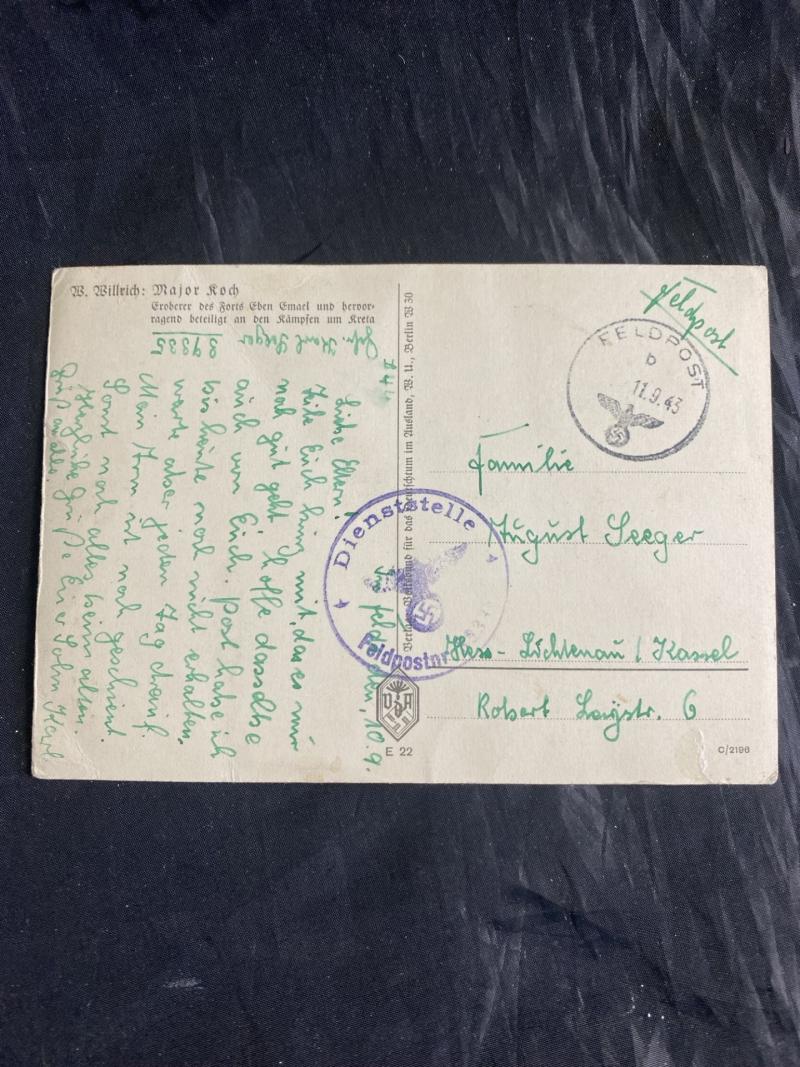 W. Willrich: Major Koch
Eroberer des Forts Eben Emael und hervor-
ragend beteiligt an den Kämpfen um Kreta
Gefr. Karl Seeger
39335
Im Felde, den, 10.9.
Liebe Eltern!
Teile Euch hirm mit, das es mir
noch gut geht hoffe dasselbe
auch von Euch. Post habe ich
bis heute noch nicht erhalten,
warte aber jeden Tag drauf
Mein Irm ist noch geschient.
Sonst noch alles beim alten.
Herzliche Grüße Euer Sohn Karl
Gruß an alle
Verlag: Volksbund für das Deutschtum im Ausland, W. U., Berlin W 30
Feldpost
FELDPOST
b
11.9.43
Familie
August Seeger
Hess-Lichtenau / Kassel
Robert Leystr. 6
Dienststelle
Feldpostnr.
VDA
E 22
C/2196